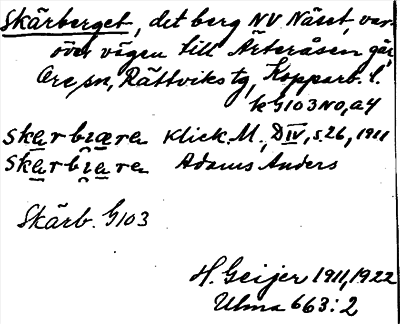 Skärberget, det berg NV Näset, var-
över vägen till Ärteråsen går,
Ore sn, Rättviks tg, Kopparb. l.
k G103 NO, a4
skærbiæra Klick. M., D IV, s. 26, 1911
skarbiara Adams Anders
Skärb. G103
H. Geijer 1911, 1922
Ulma 663:2